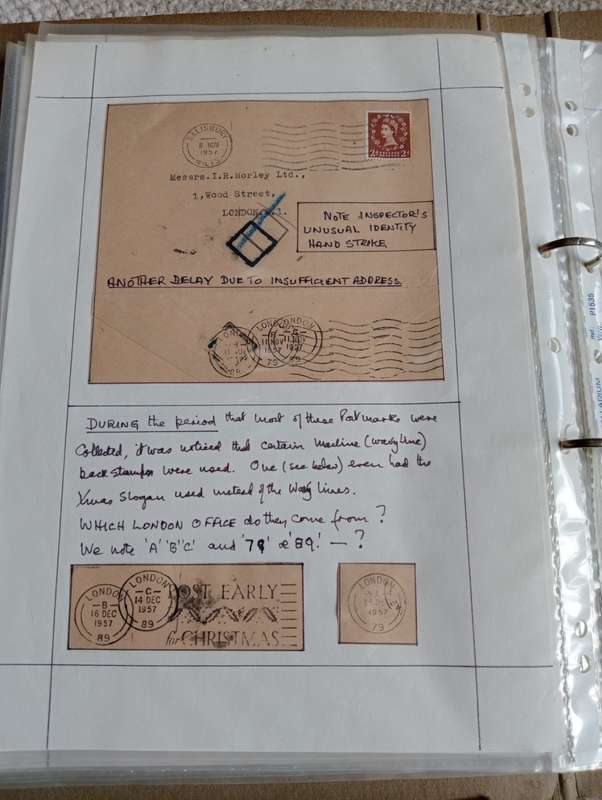 SALISBURY
8 NOV
1957
WILTS
2½ 2½
Messrs. I.R.Morley Ltd.,
1, Wood Street,
LONDON
NOTE INSPECTOR'S
UNUSUAL IDENTITY
HAND STRIKE
ANOTHER DELAY DUE TO INSUFFICIENT ADDRESS
LONDON
11 NOV
LONDON
11 NOV
1957
79
DURING the period that most of these Postmarks were
Collected, it was noticed that certain Machine (wavy line)
back stamps were used. One (see below) even had the
Xmas Slogan used instead of the Wavy lines.
WHICH LONDON OFFICE do they come from?
We note 'A' 'B' 'C' and '79' or '89' — ?
LONDON
-B-
16 DEC
1957
89
LONDON
-C-
14 DEC
1957
89
POST EARLY
for CHRISTMAS
LONDON
DEC
1957
79
P1535